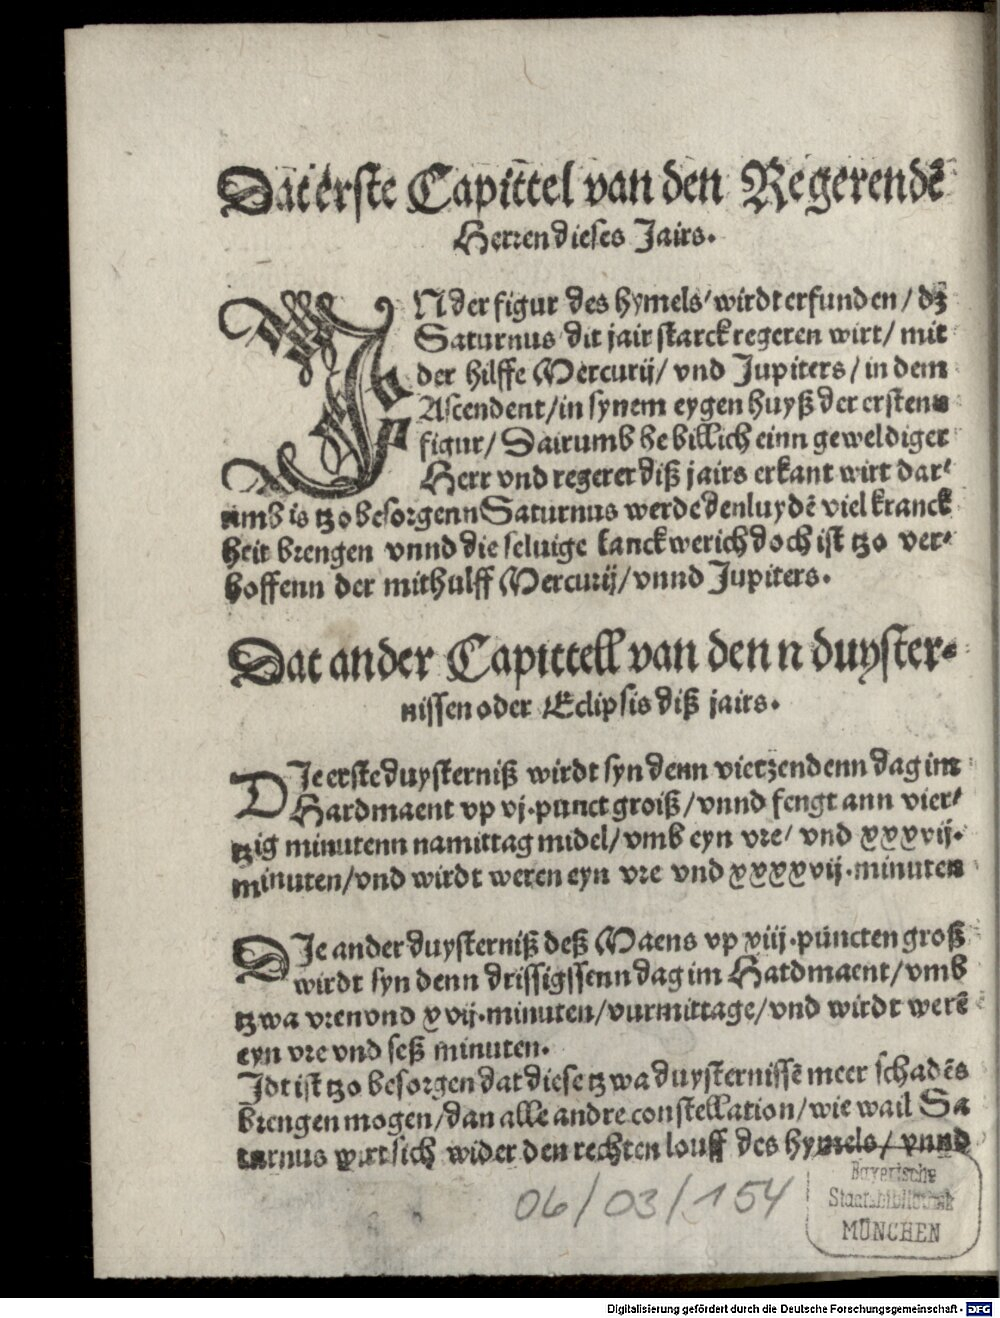 Dat erste Capittel van den Regerendē
Herren dieses Jairs.
IN der figur des hymels/ wirdt erfunden/ dz
Saturnus dit jair starck regeren wirt/ mit
der hilffe Mercurij/ vnd Jupiters/ in dem
Ascendent/ in synem eygen huyß der erstenn
figur/ Dairumb he billich einn geweldiger
Herr vnd regerer diß jairs erkant wirt dar⸗
umb is tzo besorgenn Saturnus werde den luydē viel kranck
heit brengen vnnd die seluige lanckwerich doch ist tzo ver⸗
hoffenn der mithulff Mercurij/ vnnd Jupiters.
Dat ander Capittell van denn duyster⸗
nissen oder Eclipsis diß jairs.
DIe erste duysterniß wirdt syn denn viertzendenn dag im
Hardmaent vp vj. punct groiß/ vnnd fengt ann vier⸗
tzig minutenn namittag midel/ vmb eyn vre/ vnd xxxvij.
minuten/ vnd wirdt weren eyn vre vnd xxxxvij. minuten
DIe ander duysterniß deß Maens vp xiij. puncten groß
wirdt syn denn drissigssenn dag im Hatdmaent/ vmb
tzwa vren vnd xvij. minuten/ vurmittage/ vnd wirdt werē
eyn vre vnd seß minuten.
Idt ist tzo besorgen dat diese tzwa duysternissē meer schadēs
brengen mogen/ dan alle andre constellation/ wie wail Sa
turnus wirt sich wider den rechten louff des hymels/ vnnd
06/03/154
Bayerische
Staatsbibliothek
MÜNCHEN
Digitalisierung gefördert durch die Deutsche Forschungsgemeinschaft - DFG